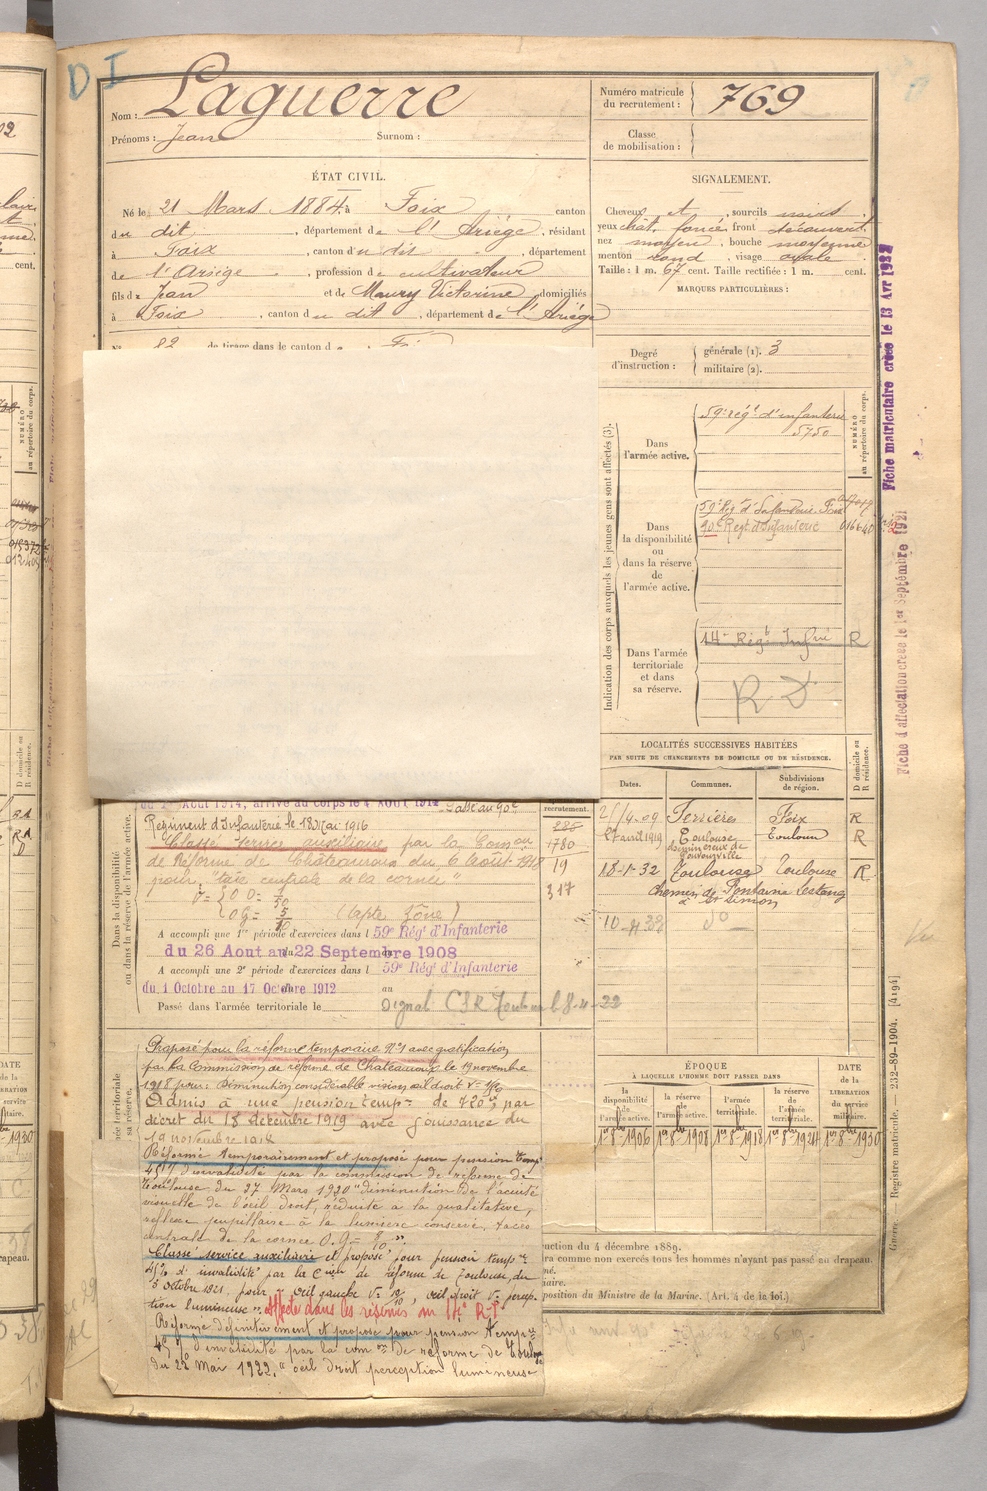 D I
Nom : Laguerre
Prénoms : Jean Surnom :
Numéro matricule
du recrutement : 769
Classe
de mobilisation :
ÉTAT CIVIL.
Né le 21 Mars 1884 à Foix, canton
du dit, département de l'Ariège, résidant
à Foix, canton du dit, département
de l'Ariège, profession de cultivateur
fils de Jean et de Maury Victorine, domiciliés
à Foix, canton du dit, département de l'Ariège
N° 82 de tirage dans le canton d
SIGNALEMENT.
Cheveux et, sourcils noirs
yeux chât. foncé, front découvert
nez moyen, bouche moyenne
menton rond, visage ovale
Taille : 1 m. 67 cent. Taille rectifiée : 1 m. cent.
MARQUES PARTICULIÈRES :
Degré
d'instruction :
générale (1). 3
militaire (2).
Indication des corps auxquels les jeunes gens sont affectés (3).
NUMÉRO
au répertoire du corps.
Dans
l'armée active.
59e rég t d'infanterie
5750
Dans
la disponibilité
ou
dans la réserve
de
l'armée active.
59e Reg t d'Infanterie Foix
90e Regt d'Infanterie
Dans l'armée
territoriale
et dans
sa réserve.
14e Régt Infrie R
R D
Fiche matriculaire créée le 13 Avr 1932
Fiche d'affectation créée le 1er Septembre 1921
LOCALITÉS SUCCESSIVES HABITÉES
PAR SUITE DE CHANGEMENTS DE DOMICILE OU DE RÉSIDENCE.
Dates. Communes. Subdivisions
de région.
D domicile ou
R résidence.
2/4-09 Ferrières Foix R
27 avril 1919 Toulouse Toulouse R
18-1-32 Toulouse Toulouse R
chemin de Fontaine Lestang
à St Simon
10-4-33 do
Dans la disponibilité
ou dans la réserve de l'armée active.
Août 1914, arrivé au corps le 4 AOUT 1914 Passé au 90e
Regiment d'Infanterie le 18 Mai 1916
Classé service auxiliaire par la Comon
de Réforme de Châteauroux du 6 Août 1918
pour "taie centrale de la cornée"
(apte zône)
recrutement.
285
1780
19
317
A accompli une 1re période d'exercices dans l 59e Régt d'Infanterie
du 26 Aout au 22 Septembre 1908
A accompli une 2e période d'exercices dans l 59e Régt d'Infanterie
du 1 Octobre au 17 Octobre 1912
Passé dans l'armée territoriale le
Proposé pour la réforme temporaire N°1 avec gratification
par la Commission de réforme de Chateauroux le 19 novembre
1918 pour : Diminution considérable vision œil droit V= 1/50
Admis à une pension tempre de 720f par
décret du 18 décembre 1919 avec jouissance du
19 novembre 1918
Réformé temporairement et proposé pour pension temp
45% d'invalidité par la commission de réforme de
Toulouse du 27 Mars 1920 "diminution de l'acuité
visuelle de l'œil droit, réduite à la qualitative,
réflexe pupillaire à la lumière conservé, taies
centrale de la cornée O.G =
Classé service auxiliaire et proposé pour pension tempre
45% d'invalidité par la Cion de réforme de Toulouse, du
5 octobre 1921. pour, œil gauche V= , œil droit V= percep-
tion lumineuse". affecté dans les réserves au 14e R.I
Réformé définitivement et proposé pour pension tempre
45% d'invalidité par la comon de réforme de Toulouse
du 22 Mai 1922. "œil droit perception lumineuse
ÉPOQUE
À LAQUELLE L'HOMME DOIT PASSER DANS
la
disponibilité
de
l'armée active.
la
réserve
de
l'armée active.
l'armée
territoriale.
la réserve
de
l'armée
territoriale.
DATE
de la
LIBÉRATION
du service
militaire.
1er 8bre 1906 1er 8bre 1908 1er 8bre 1918 1er 8bre 1924 1er 8bre 1930
uction du 4 décembre 1889.
ra comme non exercés tous les hommes n'ayant pas passé au drapeau.
né.
naire.
position du Ministre de la Marine. (Art. 4 de la loi.)
Registre matricule. — 232-89-1904. [4194]